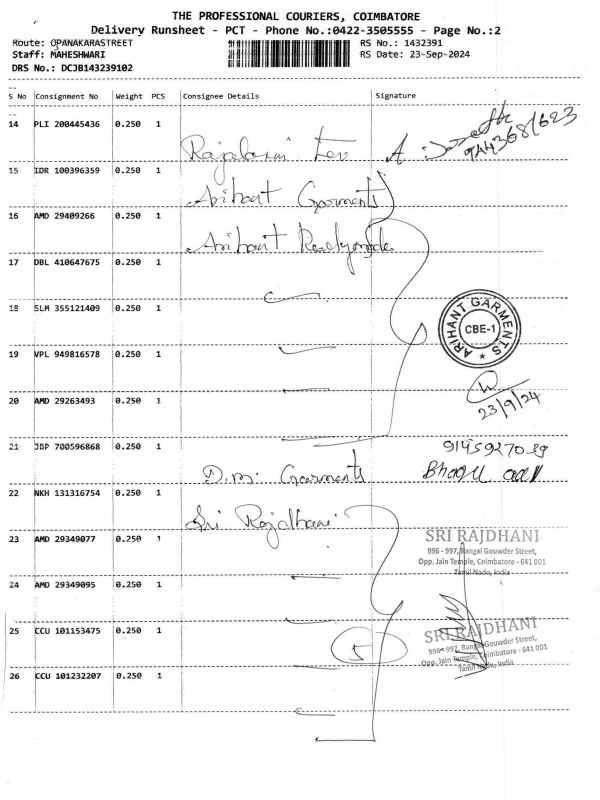 THE PROFESSIONAL COURIERS, COIMBATORE
Delivery Runsheet - PCT - Phone No.:0422-3505555 - Page No.:2
Route: OPANAKARASTREET
RS No.: 1432391
Staff: MAHESHWARI
RS Date: 23-Sep-2024
DRS No.: DCJB143239102
S No Consignment No Weight PCS Consignee Details Signature
14 PLI 200445436 0.250 1
Rajalaxmi Tex
15 IDR 100396359 0.250 1
Arihant Garments
16 AMD 29409266 0.250 1
Arihant
17 DBL 410647675 0.250 1
18 SLM 355121409 0.250 1
ARIHANT GARMENTS
CBE-1
19 VPL 949816578 0.250 1
20 AMD 29263493 0.250 1
23/9/24
21 JBP 700596868 0.250 1
D.m. Garments
22 NKH 131316754 0.250 1
Sri Rajdhani
23 AMD 29349077 0.250 1
SRI RAJDHANI
996 - 997, Rangai Gouwder Street,
Opp. Jain Temple, Coimbatore - 641 001
Tamil Nadu, India
24 AMD 29349095 0.250 1
25 CCU 101153475 0.250 1
5
SRI RAJDHANI
996- 997, Rangai Gouwder Street,
Opp. Jain Temple, Coimbatore - 641 001
Tamil Nadu, India
26 CCU 101232207 0.250 1